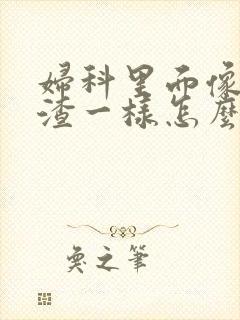 婦科里而像
渣一樣怎麼
奐之筆